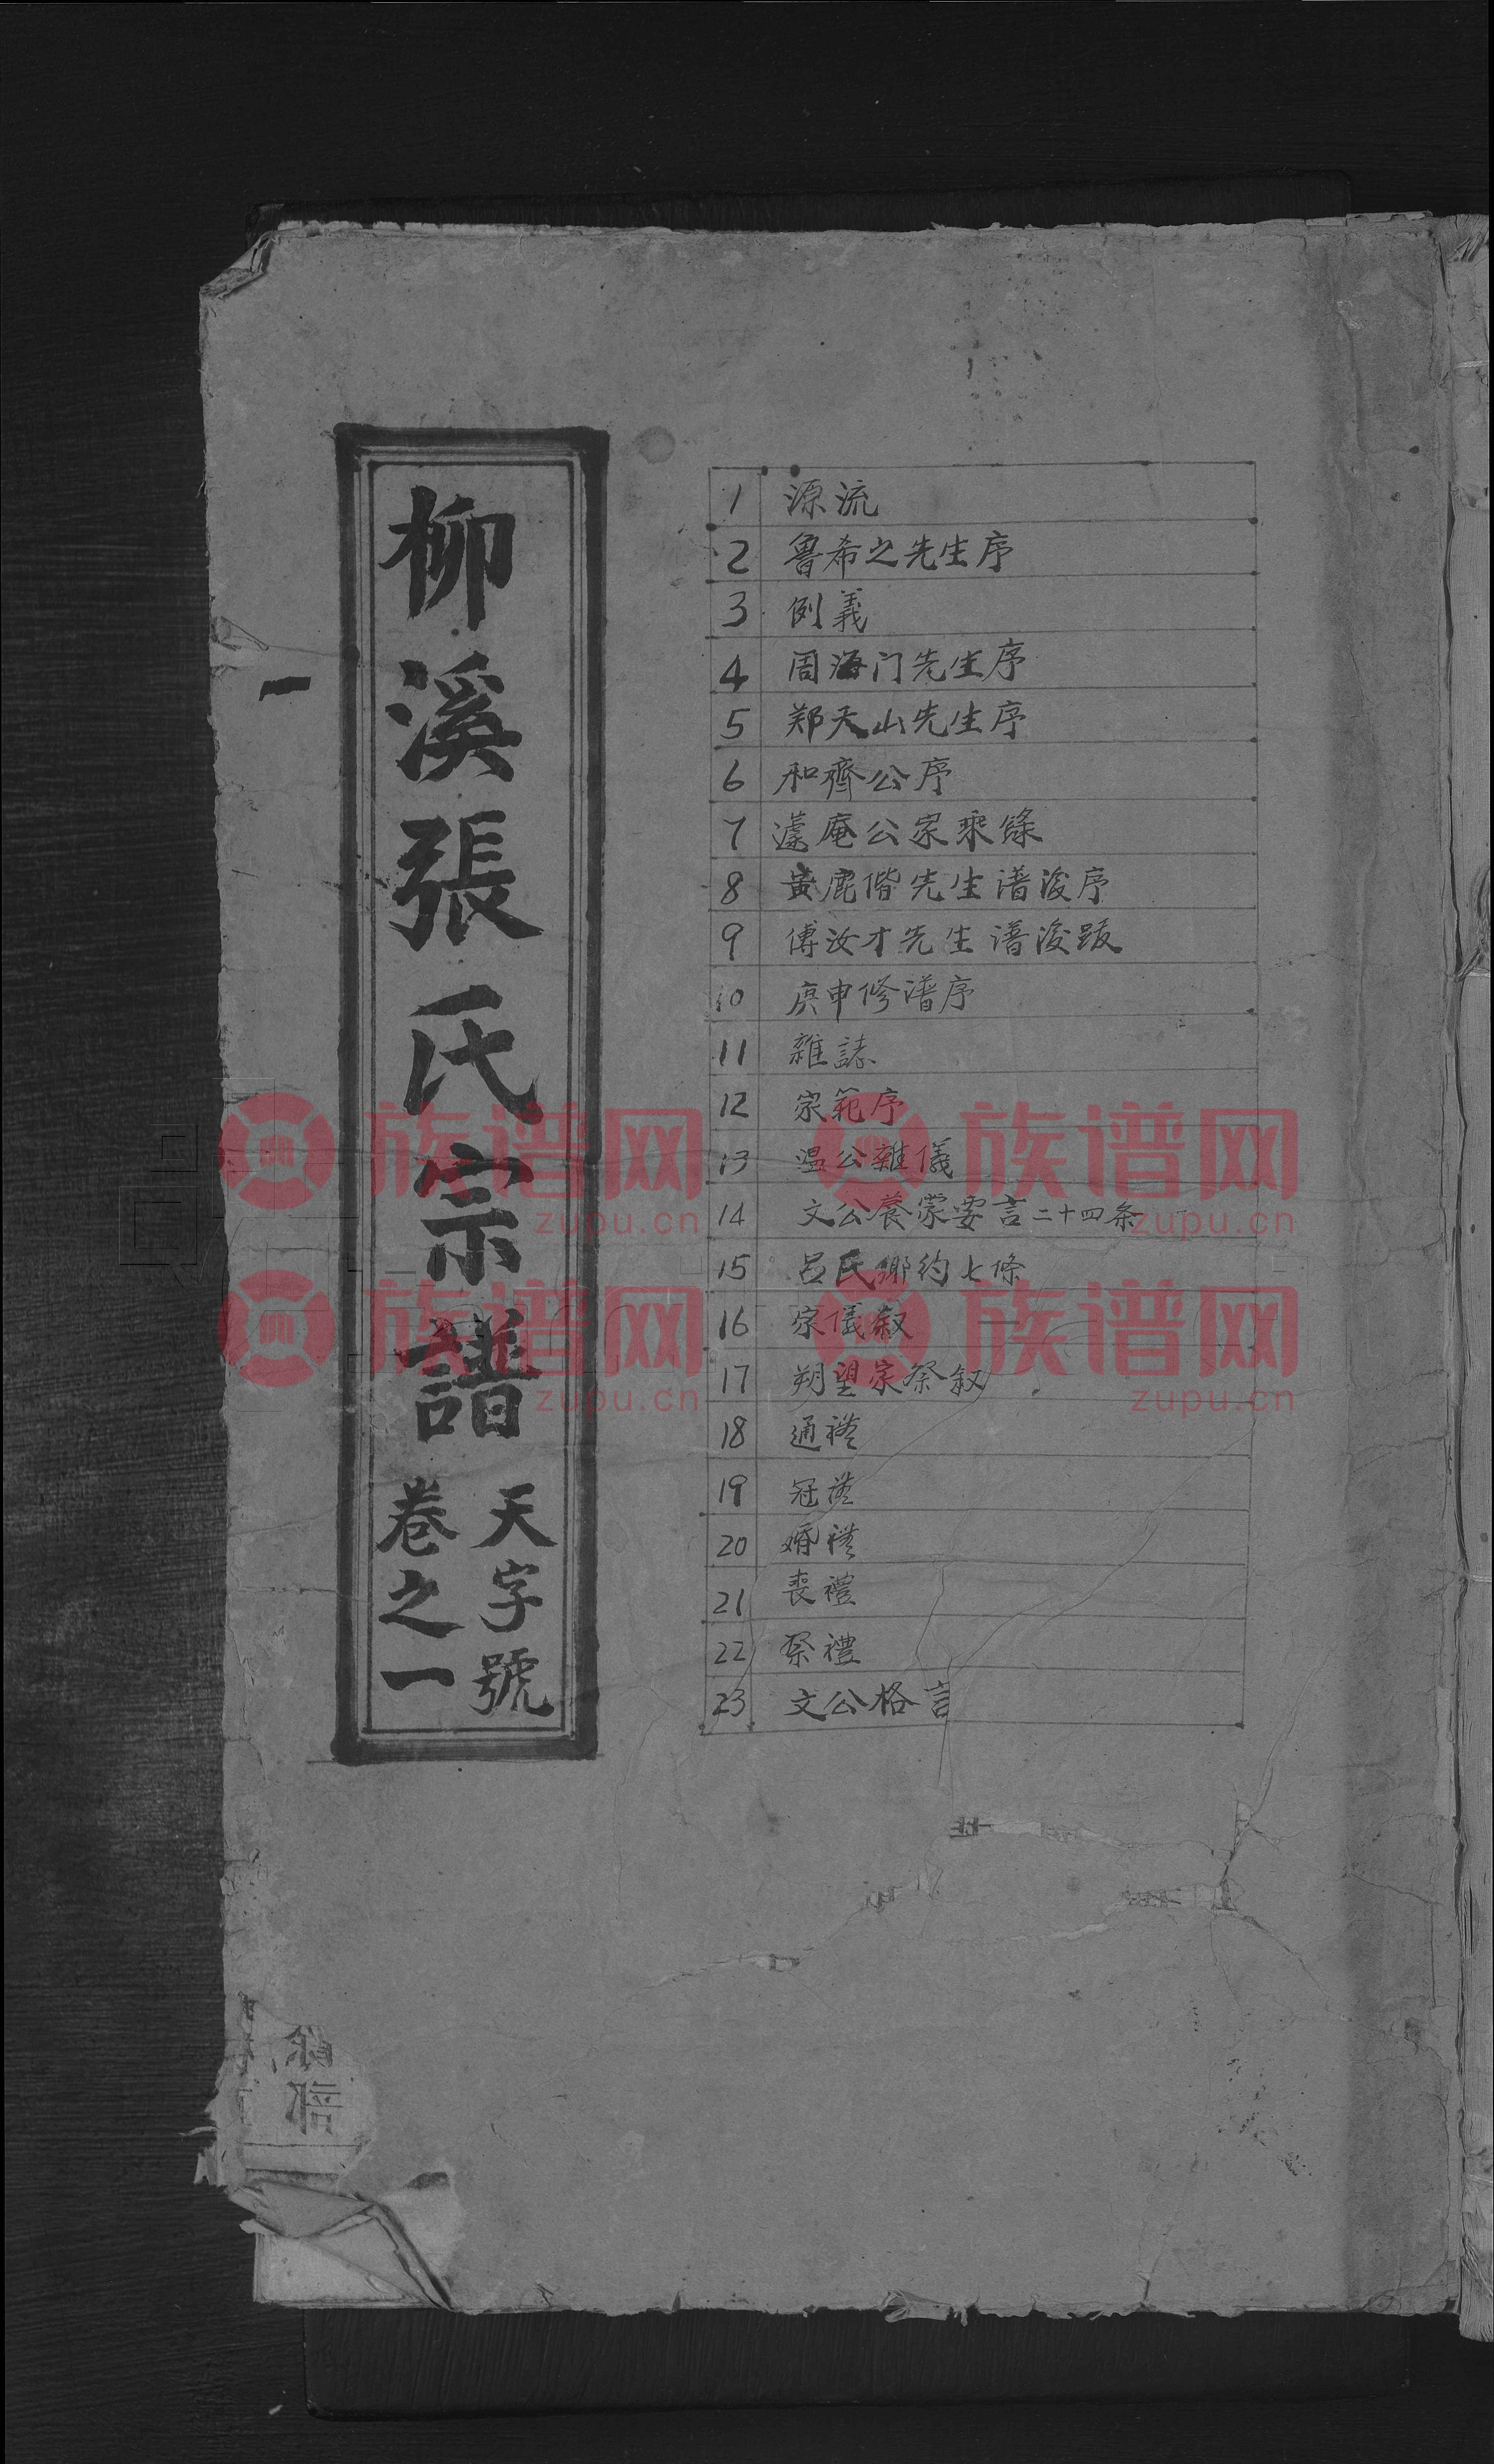 柳溪張氏宗譜
天字號
卷之一
一
1 源流
2 魯希之先生序
3 例義
4 周海门先生序
5 郑天山先生序
6 和齊公序
7 濾庵公家乘條
8 黄鹿偕先生谱後序
9 傅汝才先生谱後跋
10 庚申修谱序
11 雜誌
12 宗範序
13 温公雜儀
14 文公養蒙要言二十四条
15 吕氏鄉约七條
16 宗儀叙
17 朔望宗祭叙
18 通禮
19 冠禮
20 婚禮
21 丧禮
22 祭禮
23 文公格言
族谱网 族谱网
zupu.cn zupu.cn
族谱网 族谱网
zupu.cn zupu.cn